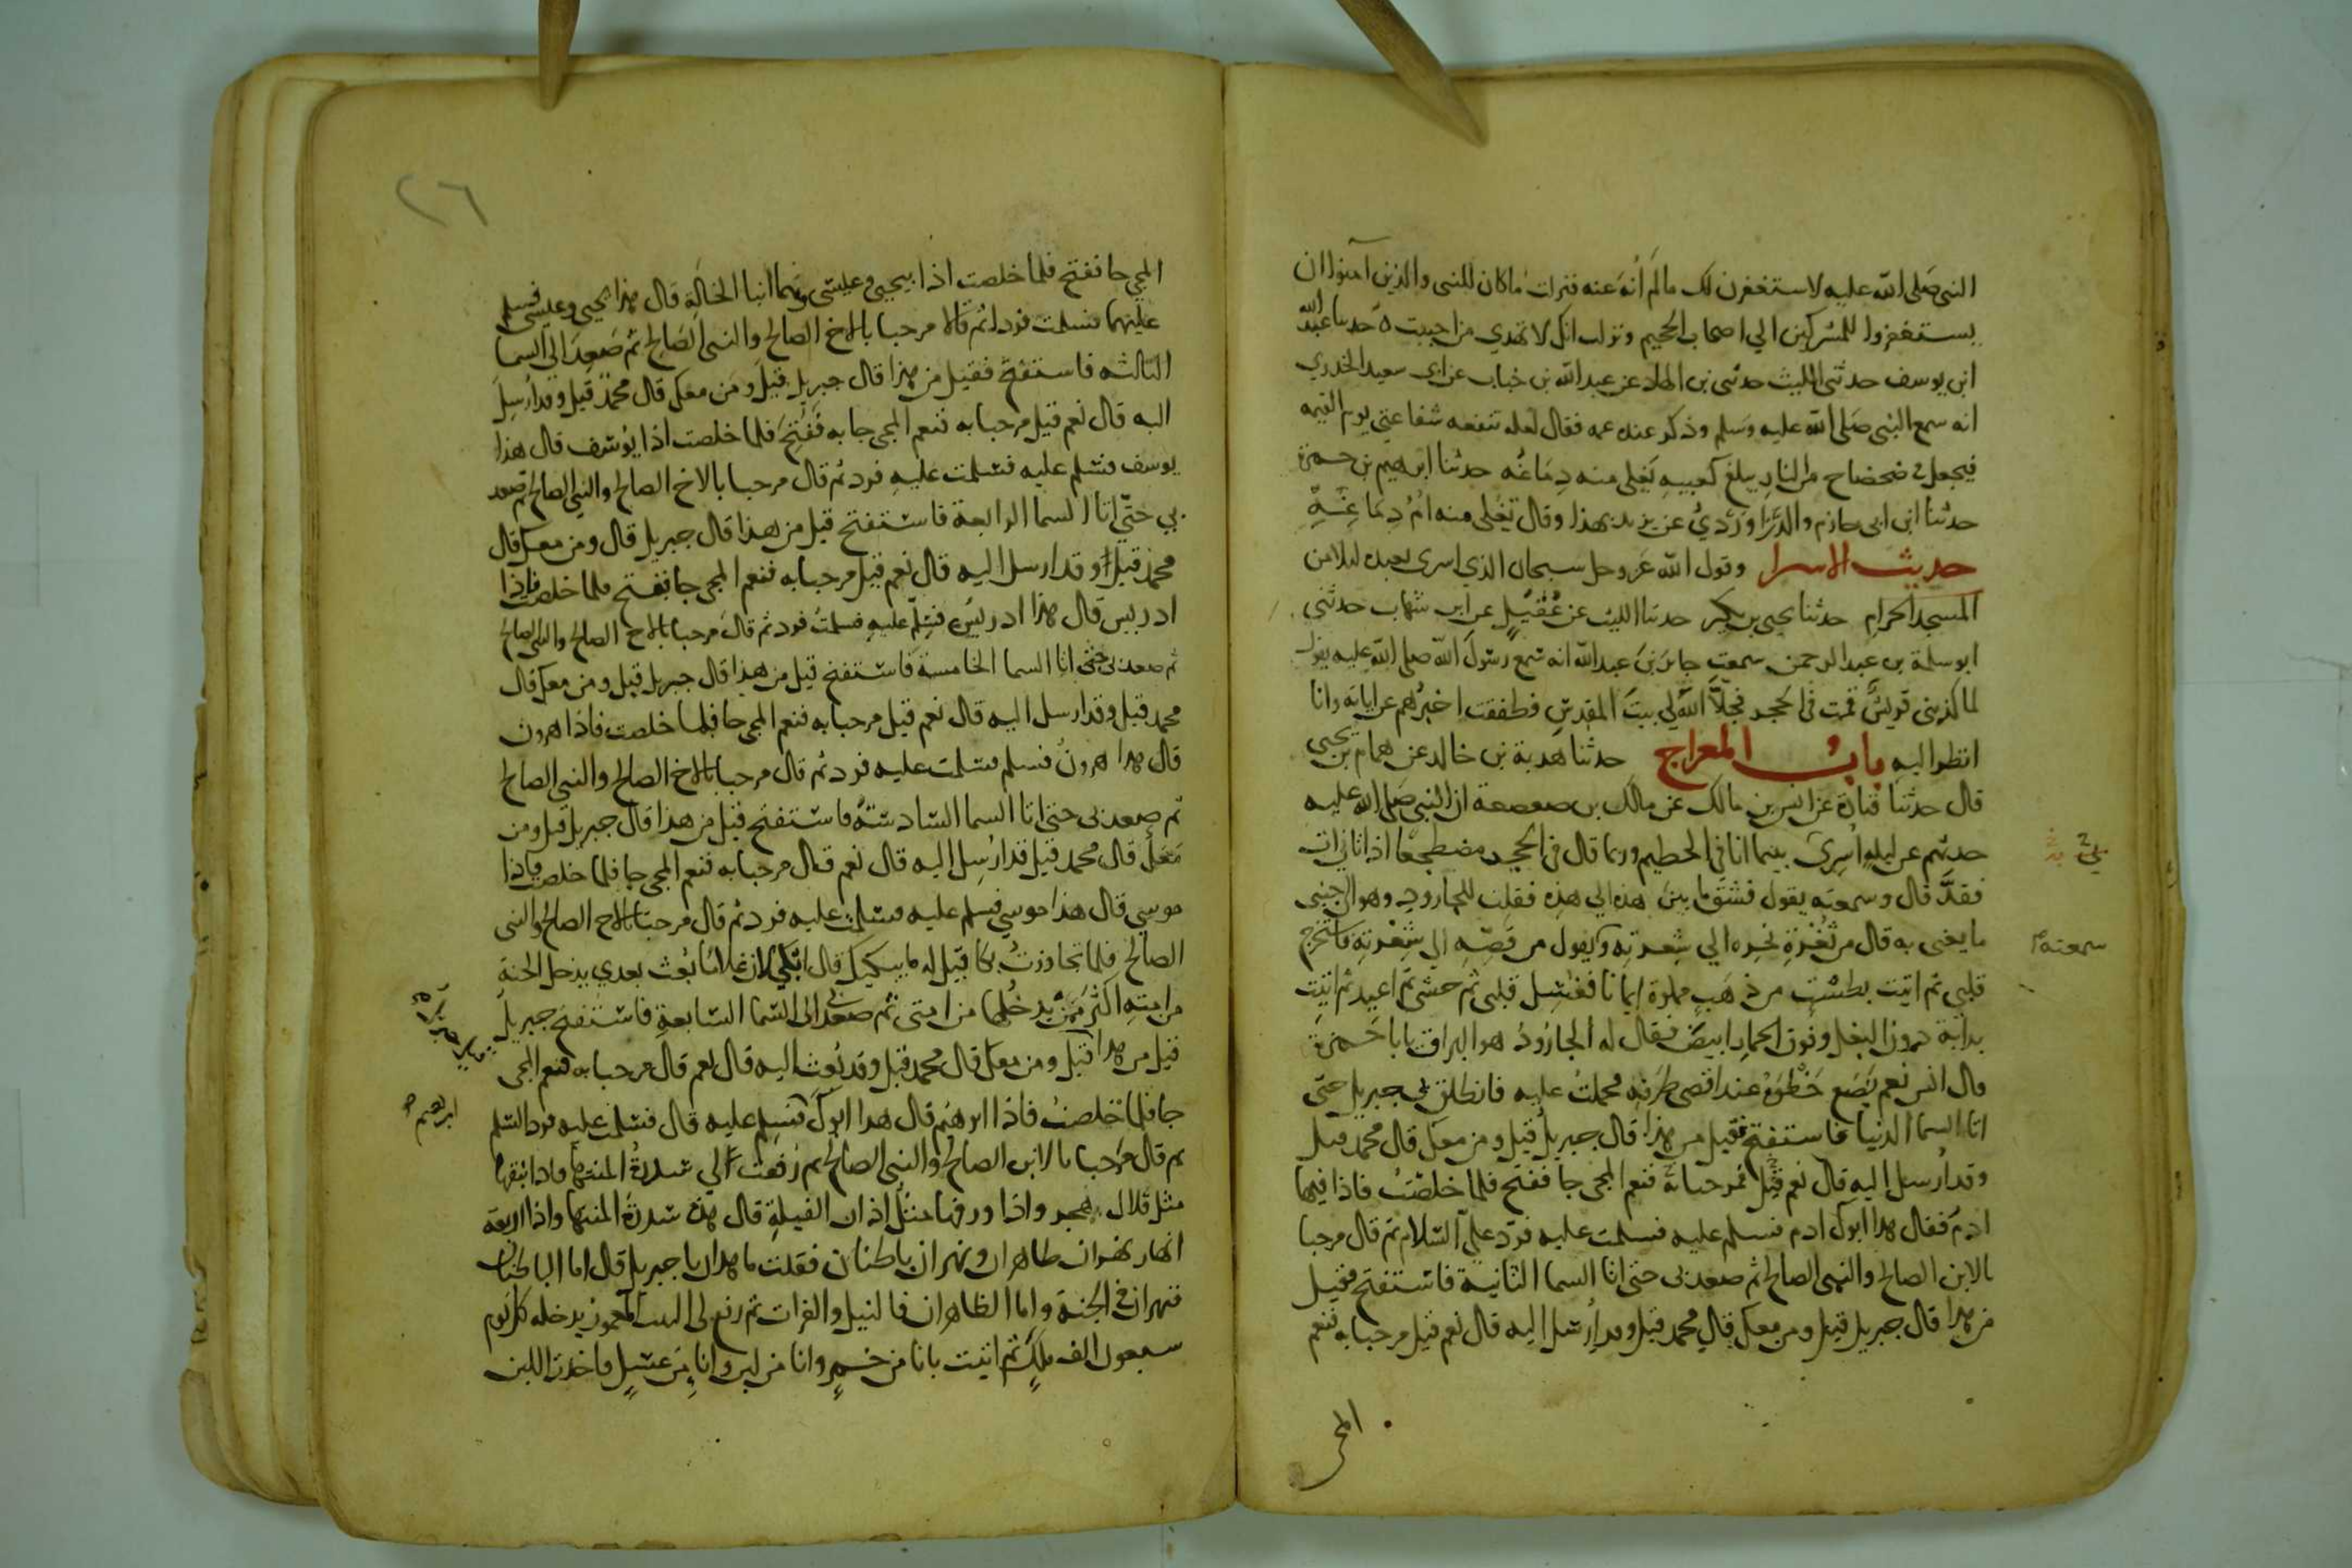 النبي صلى الله عليه لاستغفرن لك مالم أنه عنه فنزلت ما كان للنبي والذين آمنوا ان
يستغفروا للمشركين الي اصحاب الجحيم ونزلت انك لا تهدي من احببت ه حدثنا عبد الله
ابن يوسف حدثني الليث حدثني بن الهاد عن عبد الله بن خباب عن ابي سعيد الخدري
انه سمع النبي صلى الله عليه وسلم وذكر عنده عمه فقال لعله تنفعه شفاعتي يوم القيمه
فيجعل في ضحضاح من النار يبلغ كعبيه يغلي منه دماغه حدثنا ابرهيم بن حمزة
حدثنا ابن ابي حازم والدراوردي عن يزيد بهذا وقال تغلي منه ام دماغه
حديث الاسرا وقول الله عز وجل سبحان الذي اسرى بعبده ليلا من
المسجد الحرام حدثنا يحيى بن بكير حدثنا الليث عن عقيل عن ابن شهاب حدثني
ابو سلمة بن عبد الرحمن سمعت جابر بن عبد الله انه سمع رسول الله صلى الله عليه يقول
لما كذبني قريش قمت في الحجر فجلا الله لي بيت المقدس فطفقت اخبرهم عن اياته وانا
انظر اليه باب المعراج حدثنا هدبة بن خالد عن همام بن يحيى
قال حدثنا قتادة عن انس بن مالك عن مالك بن صعصعة ان النبي صلى الله عليه
حدثهم عن ليلة اسرى بينما انا في الحطيم وربما قال في الحجر مضطجعا اذ اتاني ات
فقد قال وسمعته يقول فشق ما بين هذه الي هذه فقلت للجارود وهو الي جنبي
ما يعني به قال من ثغرة نحره الي شعرته وكيقول من قصه الي شعرته فاستخرج
سمعته
قلبي ثم اتيت بطست من ذهب مملوة ايمانا فغسل قلبي ثم حشي ثم اعيد ثم اتيت
بدابة دون البغل وفوق الحمار ابيض فقال له الجارود هو البراق يابا حمزة
قال انس نعم يضع خطوه عند اقصى طرفه فحملت عليه فانطلق بي جبريل حتى
اتا السما الدنيا فاستفتح فقيل من هذا قال جبريل قيل ومن معك قال محمد قيل
وقد ارسل اليه قال نعم قيل مرحبا به فنعم المجي جا ففتح فلما خلصت فاذا فيها
ادم فقال هذا ابوك ادم فسلم عليه فسلمت عليه فرد علي السلام ثم قال مرحبا
بالابن الصالح والنبي الصالح ثم صعد بي حتى اتا السما الثانية فاستفتح فقيل
من هذا قال جبريل قيل ومن معك قال محمد قيل وقد ارسل اليه قال نعم قيل مرحبا به فنعم
المجي
٢٦
المجي جا ففتح فلما خلصت اذا بيحيى وعيسى وهما ابنا الخالة قال هذا يحيى وعيسى فسلم
عليهما فسلمت فردا ثم قالا مرحبا بالاخ الصالح والنبي الصالح ثم صعد الي السما
الثالثه فاستفتح فقيل من هذا قال جبريل قيل ومن معك قال محمد قيل وقد ارسل
اليه قال نعم قيل مرحبا به فنعم المجي جا به ففتح فلما خلصت اذا يوسف قال هذا
يوسف فسلم عليه فسلمت عليه فرد ثم قال مرحبا بالاخ الصالح والنبي الصالح ثم صعد
بي حتى اتا السما الرابعة فاستفتح قيل من هذا قال جبريل قال ومن معك قال
محمد قيل او قد ارسل اليه قال نعم قيل مرحبا به فنعم المجي جا ففتح فلما خلصت فاذا
ادريس قال هذا ادريس فسلم عليه فسلمت فرد ثم قال مرحبا بالاخ الصالح والنبي الصالح
ثم صعد بي حتى اتا السما الخامسة فاستفتح قيل من هذا قال جبريل قيل ومن معك قال
محمد قيل وقد ارسل اليه قال نعم قيل مرحبا به فنعم المجي جا فلما خلصت فاذا هرون
قال هذا هرون فسلم فسلمت عليه فرد ثم قال مرحبا بالاخ الصالح والنبي الصالح
ثم صعد بي حتى اتا السما السادسة فاستفتح قيل من هذا قال جبريل قيل ومن
معك قال محمد قيل قد ارسل اليه قال نعم قال مرحبا به فنعم المجي جا فلما خلصت فاذا
موسي قال هذا موسي فسلم عليه فسلمت عليه فرد ثم قال مرحبا بالاخ الصالح والنبي
الصالح فلما تجاوزت بكا قيل له ما يبكيك قال ابكي لان غلاما بعث بعدي يدخل الجنة
من امته اكثر ممن يدخلها من امتي ثم صعد بي الى السما السابعة فاستفتح جبريل
قيل من هذا قيل ومن معك قال محمد قيل وقد بعث اليه قال نعم قال مرحبا به فنعم المجي
جا فلما خلصت فاذا ابرهيم قال هذا ابوك فسلم عليه قال فسلمت عليه فرد السلم
ابرهيم
ثم قال مرحبا بالابن الصالح والنبي الصالح ثم رفعت الي سدرة المنتها فاذا نبقها
مثل قلال هجر واذا ورقها مثل اذان الفيلة قال هذه سدرة المنتها واذا اربعة
انهار نهران ظاهران ونهران باطنان فقلت ما هذان يا جبريل قال اما الباطنان
فنهران في الجنة واما الظاهران فالنيل والفرات ثم رفع لي البيت المعمور يدخله كل يوم
سبعون الف ملك ثم اتيت بانا من خمر وانا من لبن وانا من عسل فاخذت اللبن